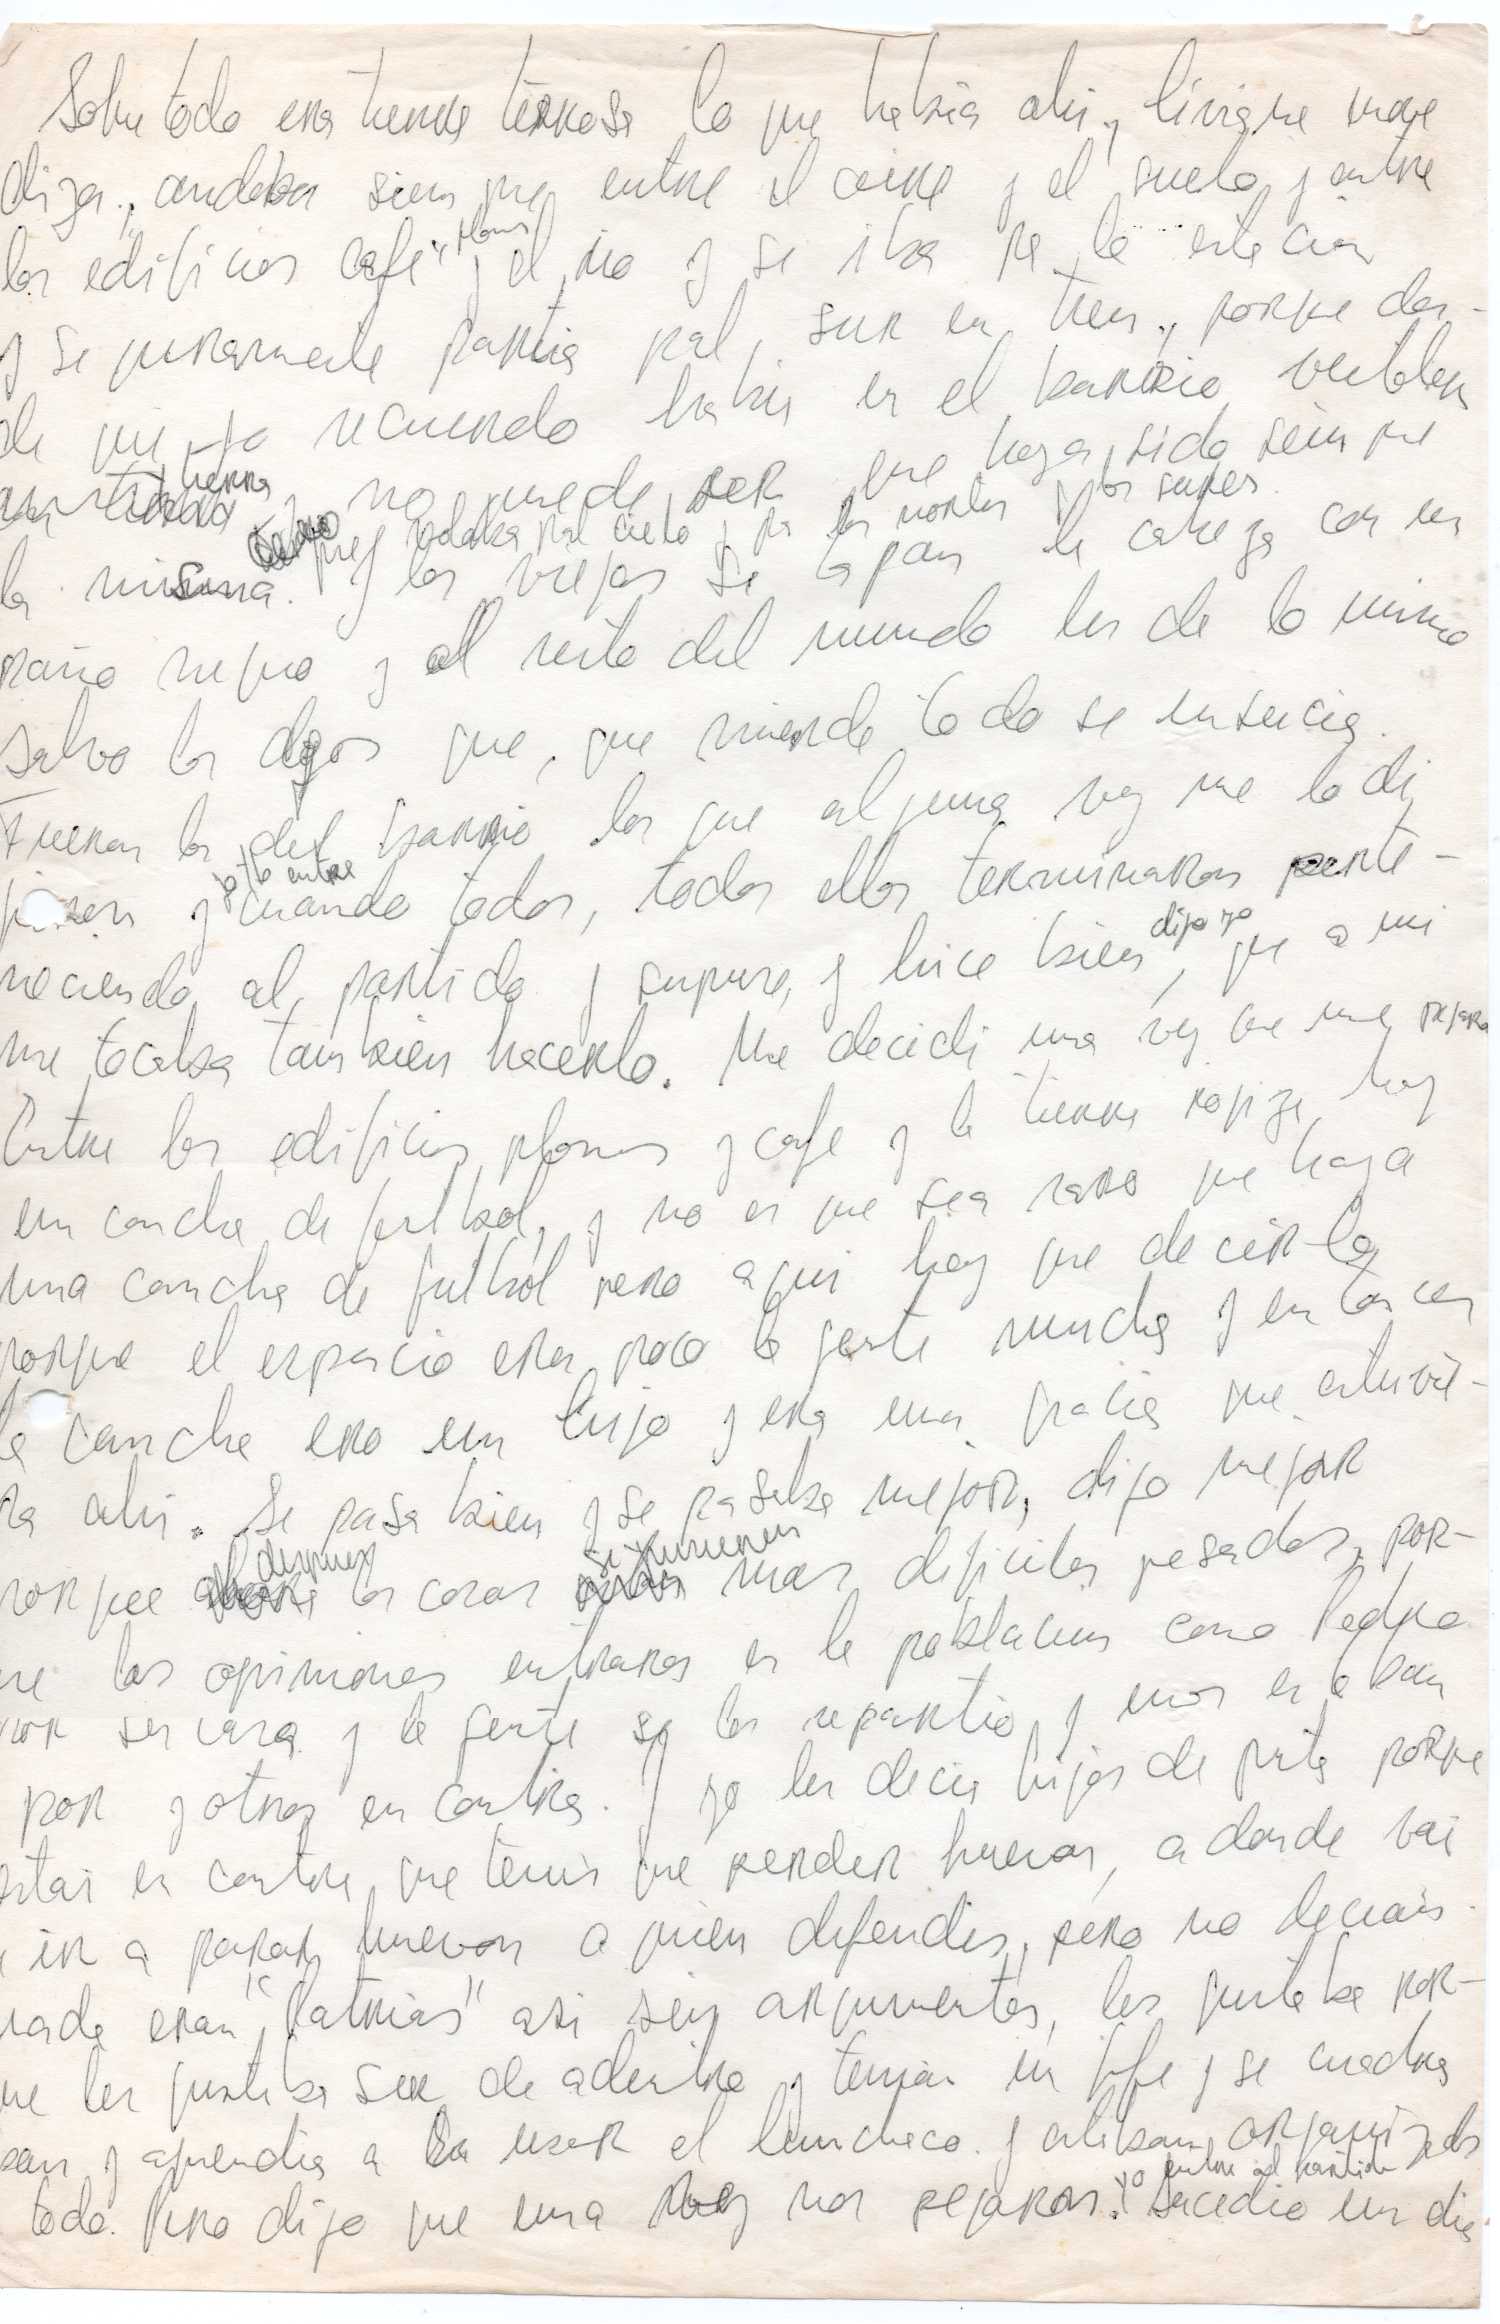 Sobre todo era tierra terrosa lo que había ahí, liviana move
diza, andaba siempre entre el aire y el suelo y entre
los edificios café y plomos el río y se iba pa la estación
y seguramente partía pal sur en tren, porque des-
de que yo recuerdo había en el barrio ventolera
con tierra y no puede ser que haya sido siempre
volaba pal cielo y pa los nortes y los sures.
la misma. y los viejos se tapan la cabeza con un
paño negro y al resto del mundo les da lo mismo
salvo los que, que mierda todo se ensucia.
Fueron los del barrio los que alguna vez me lo di
jeron y yo lo entré cuando todos, todos ellos terminaron perte-
neciendo al partido y supuse, y hice bien digo yo, que a mi
me tocaba también hacerlo. Me decidí una vez que me pegaron
Entre los edificios plomos y café y la tierra rojiza hay
un cancha de futbol, y no es que sea raro que haya
una cancha de futból pero aquí hay que decirlo
porque el espacio era poco la gente mucha y entonces
la cancha era un lujo y era una gracia que estuvie-
ra ahí. Se pasa bien y se pasaba mejor, digo mejor
porque después las cosas se pusieron mas dificiles pesadas, por-
que las opiniones entraron en la poblacion como Pedro
por su casa y la gente se las repartió y unos estaban
por y otros en contra. Y yo les decía hijos de puta porque
estai en contra, que tenis que perder huevon, a donde vai
a ir a parar huevon a quien defendis, pero no decian
nada eran "Patrias" asi sin argumentos, les gustaba por-
que les gustaba ser de adentro y tenían un jefe y se cuadra
ban y aprendia a usar el linchaco y estaban organizados
todo. Pero digo que una vez nos pegaron. yo entre al partido Sucedió un día